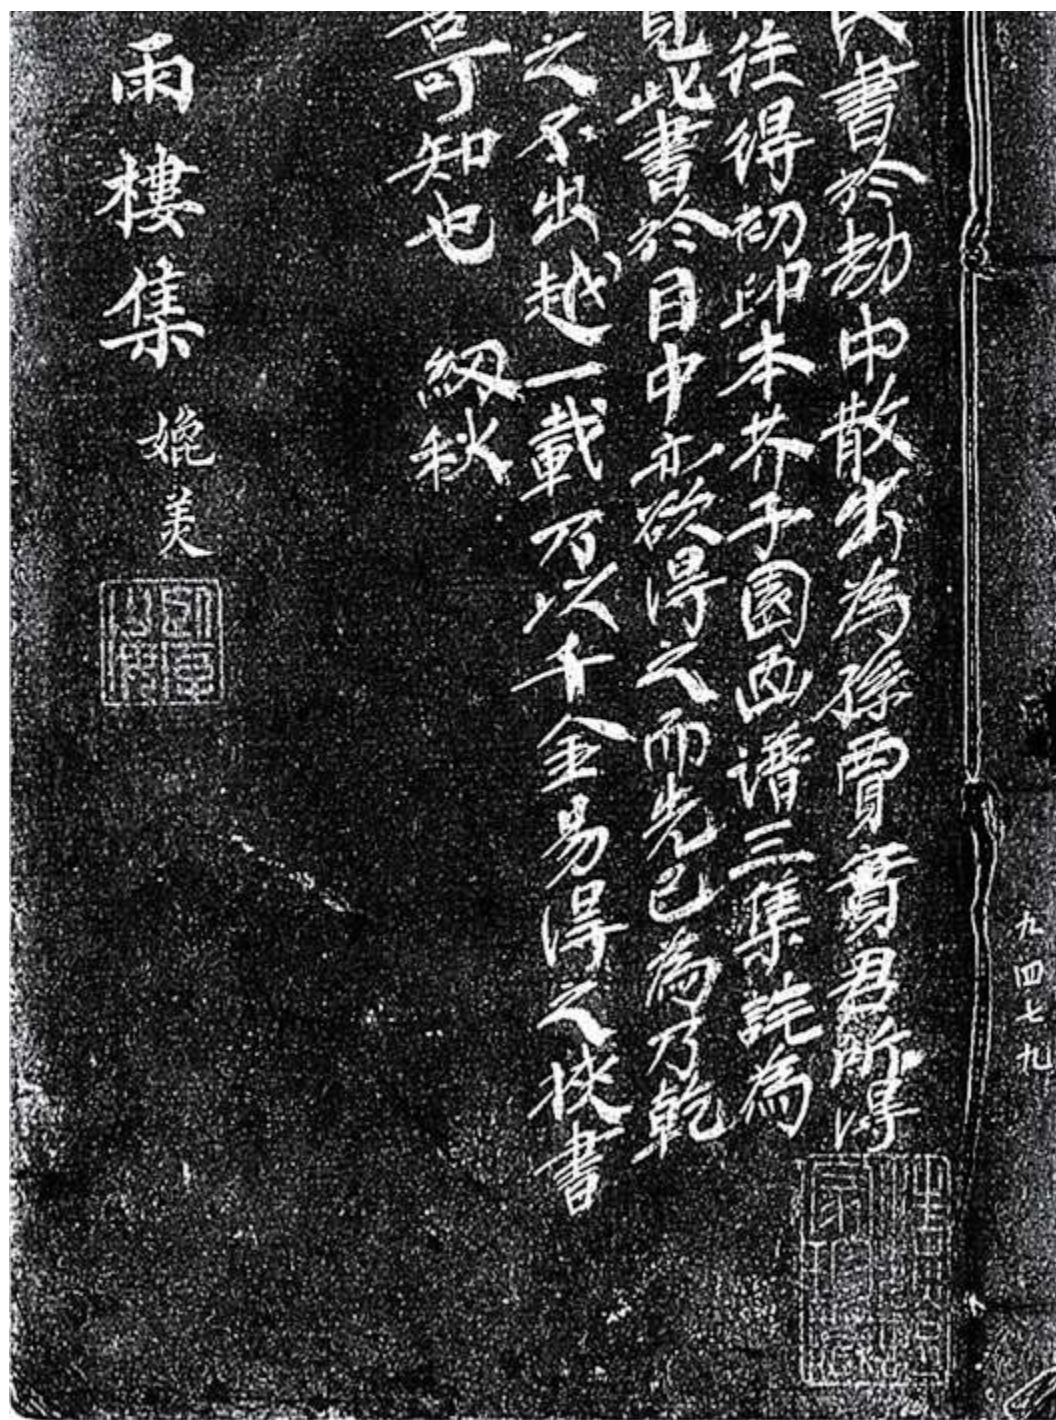 九四七九
書於劫中散出為孫賈實君所得
往得初印本芥子園画譜三集詫為
見此書於目中亦欲得之而先已為乃乾
之不出越一載乃以千金易得之狄書
可知也　紉秋
雨樓集
媿美